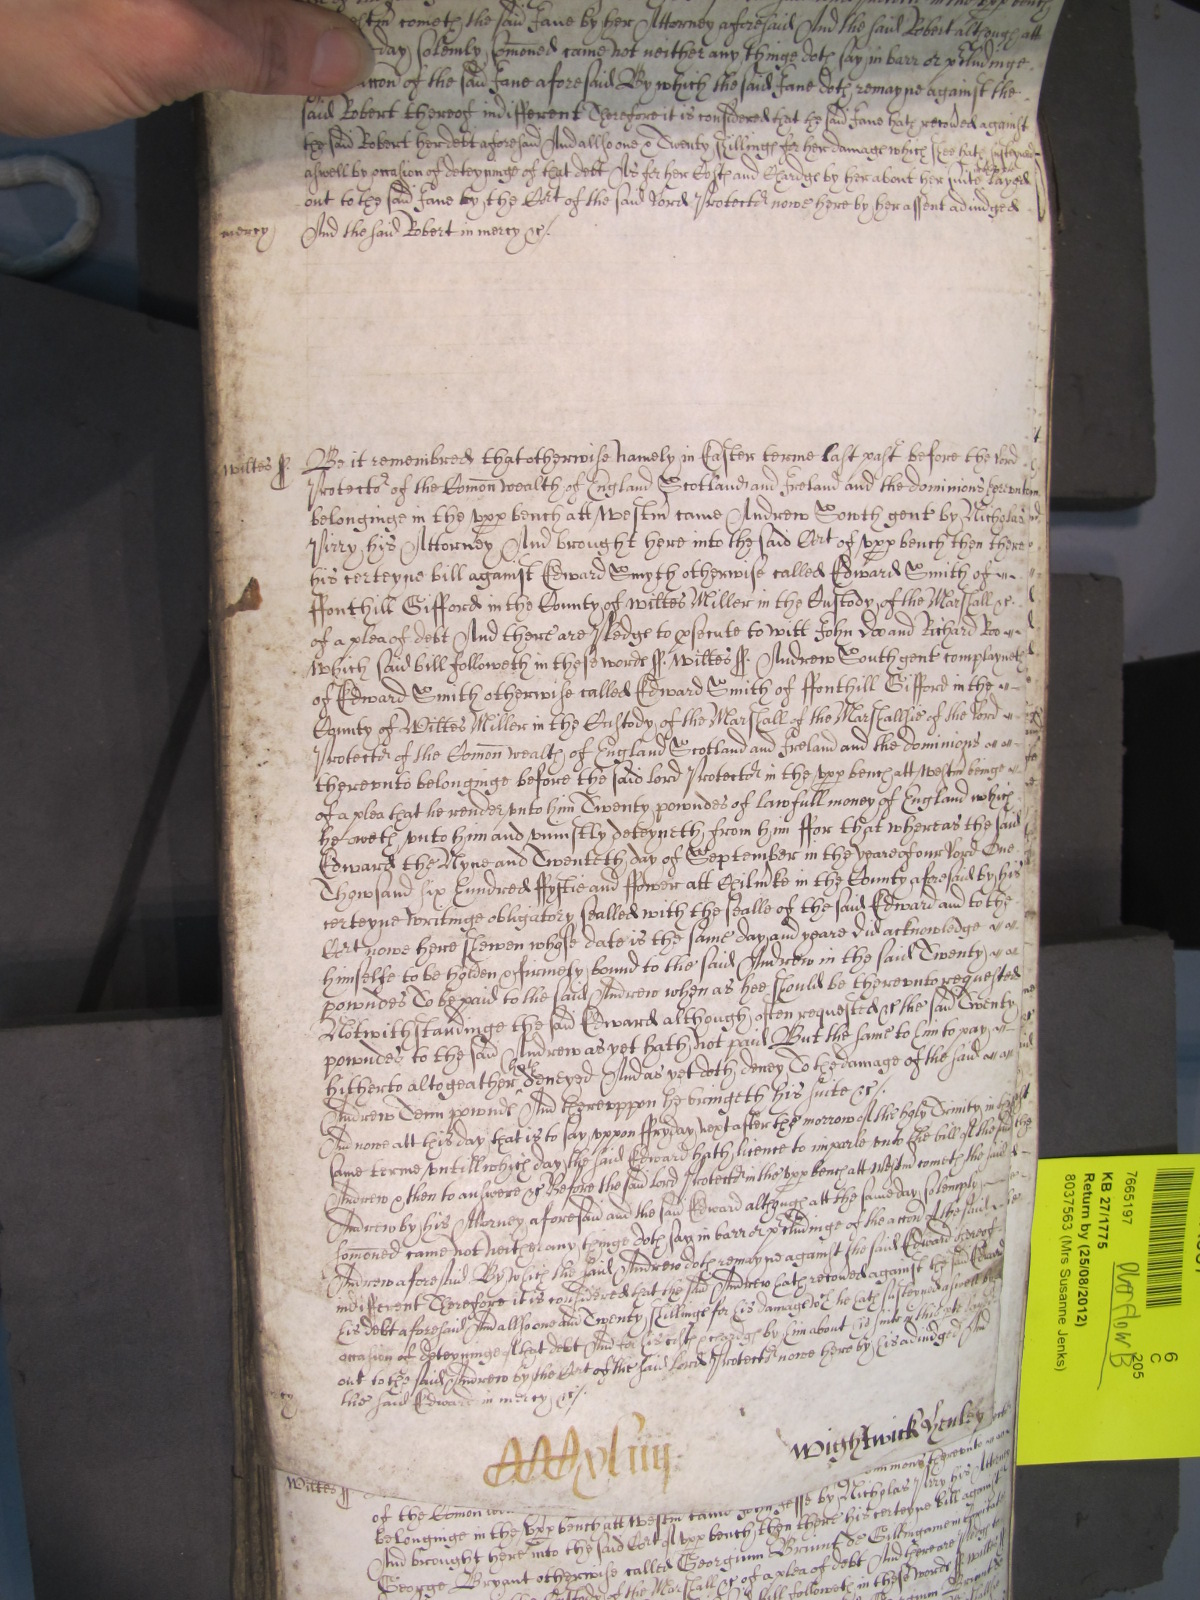 Westm cometh the said Jane by her Attorney aforesaid And the said Robert although att
day solemly somoned came not neither any thinge doth say in barr or pcludinge
accon of the said Jane aforesaid By which the said Jane doth remayne against the
said Robert thereof indifferent Therefore it is considered that the said Jane hath recoued against
the said Robert her debt aforesaid And allso one & Twenty shillings for her damage which shee hath susteyned
aswell by occasion of deteyninge of that debt As for her Costs and Chardge by her about her suite layed
out to the said Jane by the Cort of the said Lord Protector nowe here by her assent adiudged
mercy And the said Robert in mercy &c.
Wiltes ss. Be it remembred that otherwise Namely in Easter terme last past before the lord
Protector of the Comon wealth of England Scotland and Ireland and the dominions therevnto
belonginge in the vpp bench att Westm came Andrew South gent by Nicholas
Pirry his Attorney And brought here into the said Cort of vpp bench then there
his certeyne bill against Edward Smyth otherwise called Edward Smith of
ffonthill Gifford in the County of Wiltes Miller in the Custody of the Marshall &c.
of a plea of debt And there are Pledge to psecute to witt John Doo and Richard Roo
Which said bill followeth in these words ss. Wiltes ss. Andrew South gent complayneth
of Edward Smith otherwise called Edward Smith of ffonthill Gifford in the
County of Wiltes Miller in the Custody of the Marshall of the Marshallsie of the lord
Protector of the Comon wealth of England Scotland and Ireland and the dominions
therevnto belonginge before the said lord Protector in the vpp bench att Westm beinge
of a plea that he render vnto him Twenty powndes of lawfull money of England which
he oweth vnto him and vniustly deteyneth from him ffor that whereas the said
Edward the Nyne and Twenteth day of September in the yeare of our Lord One
Thowsand six hundred ffyftie and ffower att in the County aforesaid by his
certeyne writinge obligatory sealled with the sealle of the said Edward and to the
Cort nowe here shewen whose date is the same day and yeare did acknowledge
himselfe to be holden & firmely bound to the said Andrew in the said Twenty
powndes To be paid to the said Andrew when as hee should be therevnto requested
Notwithstandinge the said Edward although often requested &c the said Twenty
powndes to the said Andrew as yet hath not paid But the same to him to pay
hitherto altogeather hath denyed And as yet doth deney To the damage of the said
Andrew Tenn pownds And therevppon he bringeth his suite &c.
And nowe att this day that is to say vppon ffryday next after the morrow of the holy Trinity in this
same terme vntill which day the said Edward hath licence to imparle vnto the bill of the said
Andrew & then to answere &c Before the said lord Protector in the vpp bench att Westm cometh the said
Andrew by his Attorney aforesaid and the said Edward although att the same day solemply
somoned came not neither any thinge doth say in barr or pcludinge of the accon of the said
Andrew aforesaid By which the said Andrew doth remayne against the said Edward thereof
indifferent Therefore it is considered that the said Andrew hath recoued against the said Edward
his debt aforesaid And allso one and Twenty shillings for his damage wch he hath susteyned aswell by
occasion of deteyninge of that debt And for his costs & chardge by him about his suite in this pte layed
out to the said Andrew by the Cort of the said Lord Protector nowe here by his adiudged And
the said Edward in mercy &c.
Wightwick Henley
Wiltes ss
of the Comon
belonginge in the vpp bench att Westm came by Nicholas Pirry his Attorney
And brought here into the said Cort of vpp bench then there his certeyne bill against
George Bryant otherwise called Georgium Bryant de Gillingam in Comitatu
Custody of the Marshall &c of a plea of debt And there are pledge to
bill followeth in these words ss Wiltes ss
7665197
KB 27/1775
Return by (25/08/2012)
8037563 (Mrs Susanne Jenks)
6
C
205